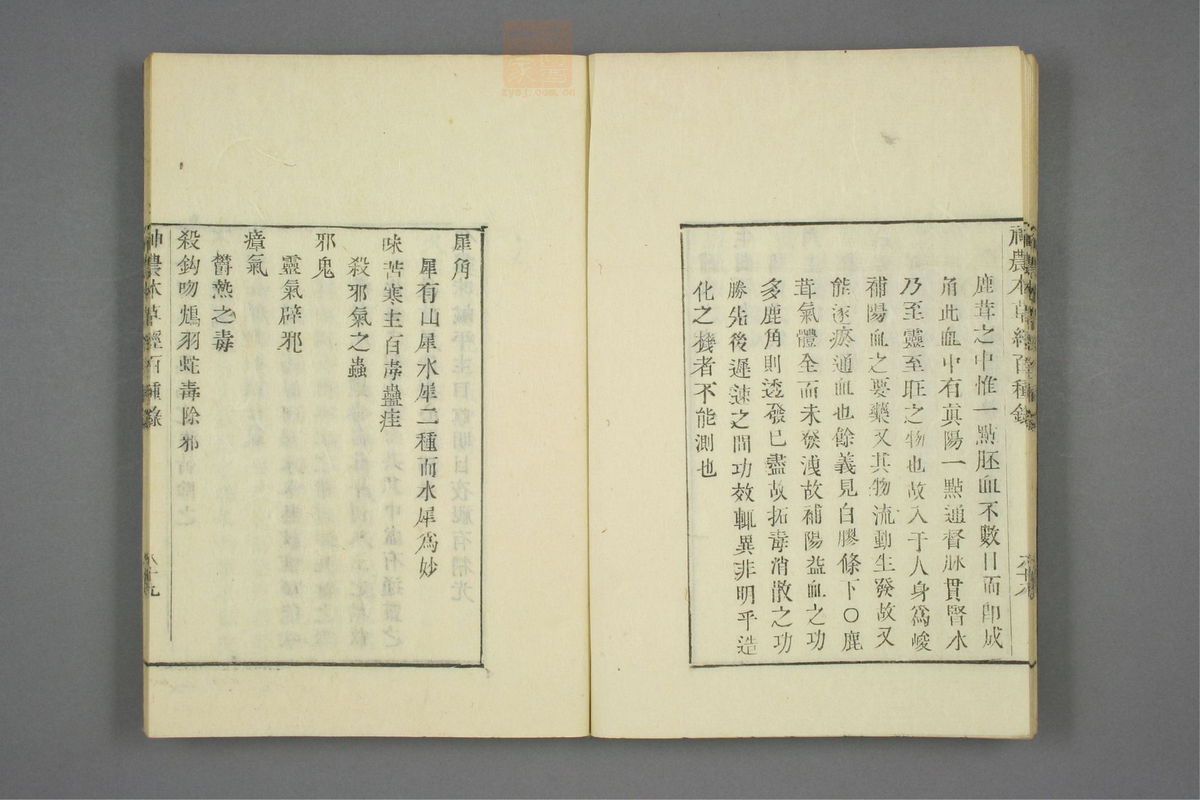 神農本草經百種錄
六十八
鹿茸之中惟一點胚血不數日而卽成
角此血中有眞陽一點通督脉貫腎水
乃至靈至旺之物也故入于人身爲峻
補陽血之要藥又其物流動生發故又
能逐瘀通血也餘義見白膠條下○鹿
茸氣體全而未發洩故補陽益血之功
多鹿角則透發已盡故拓毒消散之功
勝先後遲速之間功效輒異非明乎造
化之機者不能測也
犀角
犀有山犀水犀二種而水犀爲妙
味苦寒主百毒蠱疰
殺邪氣之蟲
邪鬼
靈氣辟邪
瘴氣
欝熱之毒
殺鈎吻鴆羽蛇毒除邪
神農本草經百種錄
六十九
zysj.com.cn